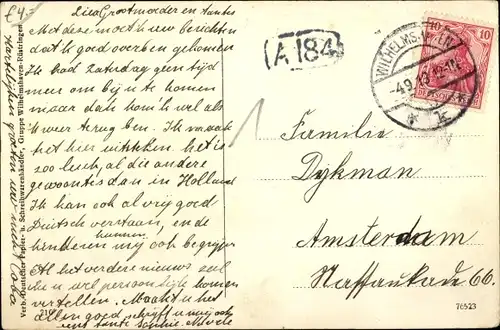 £4,-
Lieve Grootmoeder en tantes
Met deze moet ik u berichten
dat ik goed overben gekomen
Ik had Zaterdag geen tijd
meer om bij u te komen
maar dan kom ik wel als
ik weer terug ben. Ik maak
het hier uitstekend het is
zoo leuk, al die andere
gewoontes dan in Holland
Ik kan ook al vrij goed
Duitsch verstaan, en de
kinderen kunnen mij ook begrijpen
Al het verdere nieuws zal
ik u wel persoonlijk komen
vertellen. Maakt u het
allen goed schrijft u mij ook
eens tante
hartelijke groeten van
Verb. Deutscher Papier- u. Schreibwarenhändler, Gruppe Wilhelmshaven-Rüstringen
A 184
WILHELMSHAVEN
4.9.13. 12-1N.
* k
10
10
Familie
Dykman
Amsterdam
Nassaukade 66.
76523